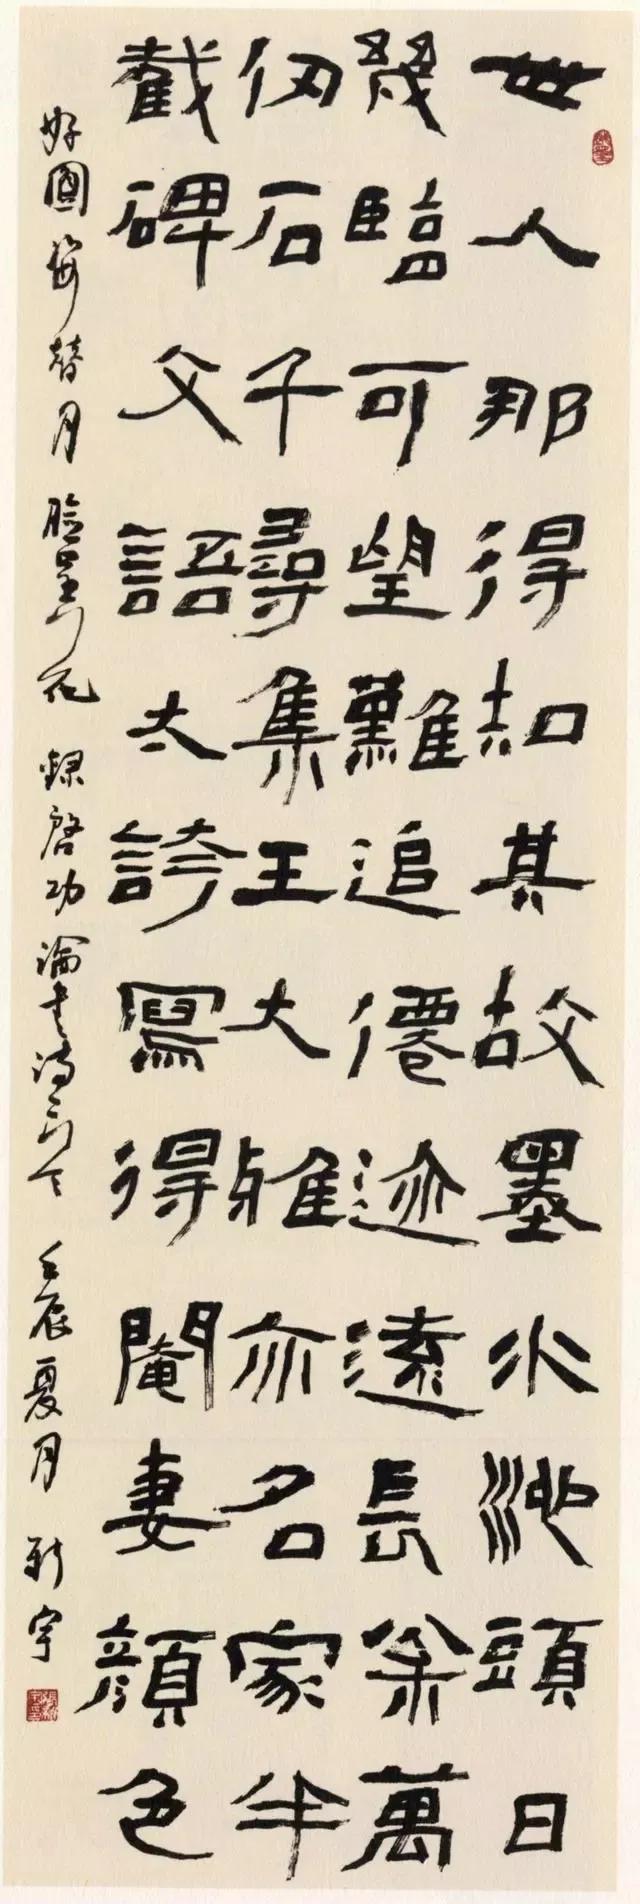 世人那得知其故墨水池頭日
幾臨可望難追僊迹遠長枀萬
仞石千尋集王大雅亦名家半
截碑文語太誇寫得閹妻顏色
好圓姿替月臉呈花 錄啓功論書詩二首 壬辰夏月 新宇